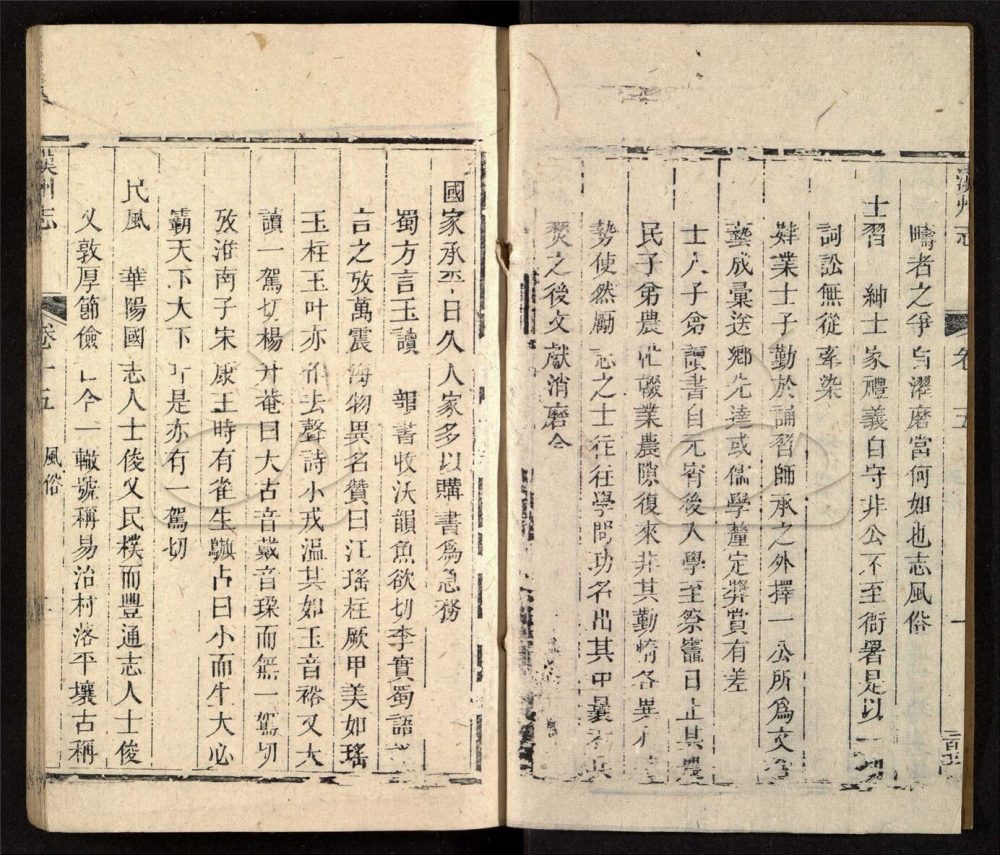 漢州志
卷
五
疇者之爭自濯磨當何如也志風俗
士習 紳士家禮義自守非公不至衙署是以一切
詞訟無從牽染
肄業士子勤於誦習師承之外擇一公所爲文會
藝成彙送鄉先達或儒學釐定獎賞有差
士人子弟讀書自元宵後入學至祭竈日止其農
民子弟農忙輟業農隙復來非其勤惰各異
勢使然勵志之士往往學問功名出其中曩者兵
燹之後文獻消磨今
國家承平日久人家多以購書爲急務
蜀方言玉讀 韻書收沃韻魚欲切李實蜀語
言之攷萬震海物異名贊曰江瑤柱厥甲美如瑤
玉柱玉叶亦作去聲詩小戎溫其如玉音裕又大
讀一駕切楊升菴曰大古音戴音垜而無一駕切
攷淮南子宋康王時有雀生鸇占曰小而生大必
霸天下大下叶是亦有一駕切
民風 華陽國志人士俊乂民樸而豐通志人士俊
乂敦厚節儉古今一轍號稱易治村落平壤古稱
漢州志
卷十五
風俗